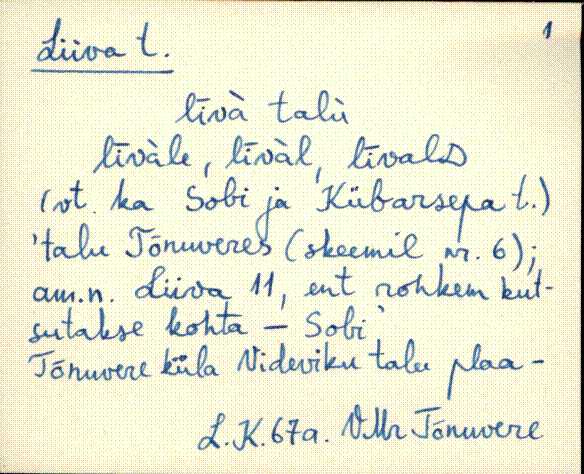 1
Liiva t.
līvà talù
līvàle, līvàl, līvalD
(vt. ka Sobi ja Kübarsepa t.)
'talu Tõnuveres (skeemil nr. 6);
am.n. Liiva 11, ent rohkem kut-
sutakse kohta – Sobi'
Tõnuvere küla Videviku talu plaa-
L.K.67a. VMr Tõnuvere